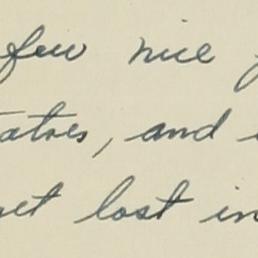 few nice
atoes, and
et lost in